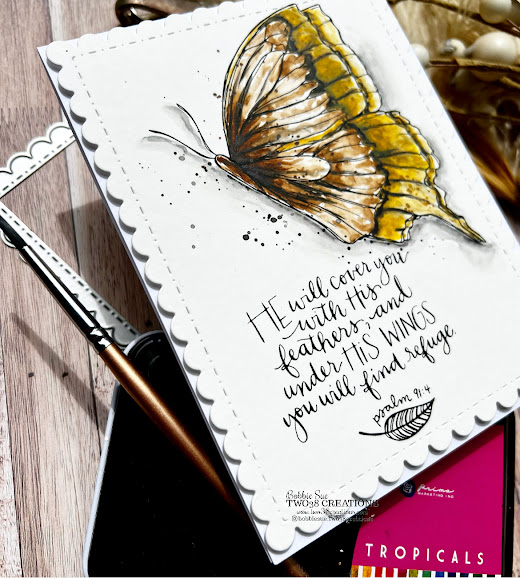 HE will cover you
with His
feathers, and
under HIS WINGS
you will find refuge.
psalm 91:4
Bobbie Sue
TWO38 CREATIONS
Prima
MARKETING INC
TROPICALS